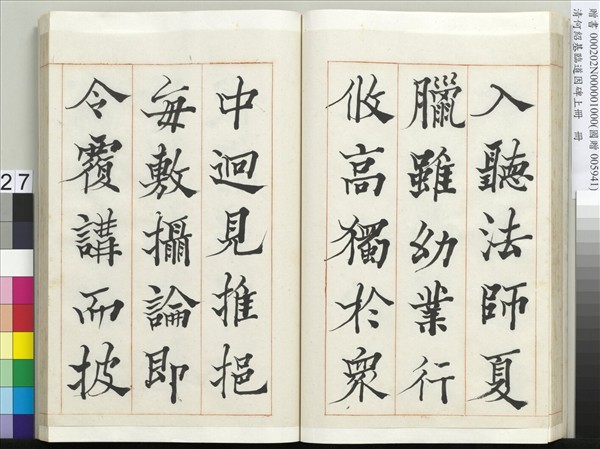 入聽法師夏
臘雖幼業行
攸高獨於衆
中迥見推挹
每敷攝論即
令覆講而披
贈書 000202N000001000(國贈 005941)
清何紹基臨道因碑上冊 冊
27